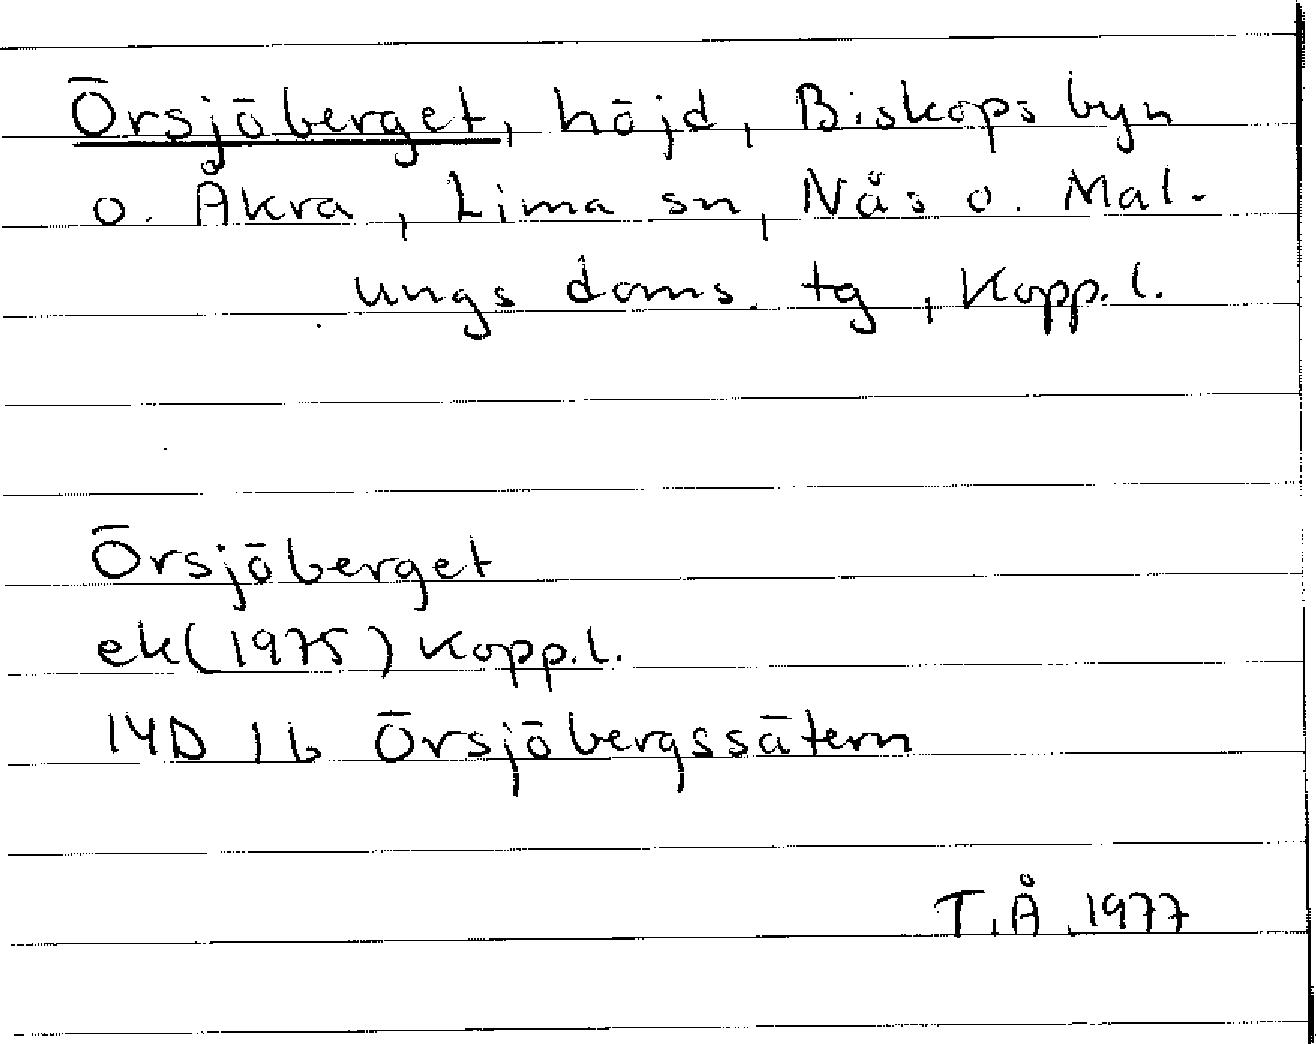 Örsjöberget, höjd, Biskopsbyn
o. Åkra, Lima sn, Nås o. Mal-
ungs doms. tg, Kopp. l.
Örsjöberget
ek (1975) Kopp. l.
14D 1b Örsjöbergssätern
T.Å. 1977